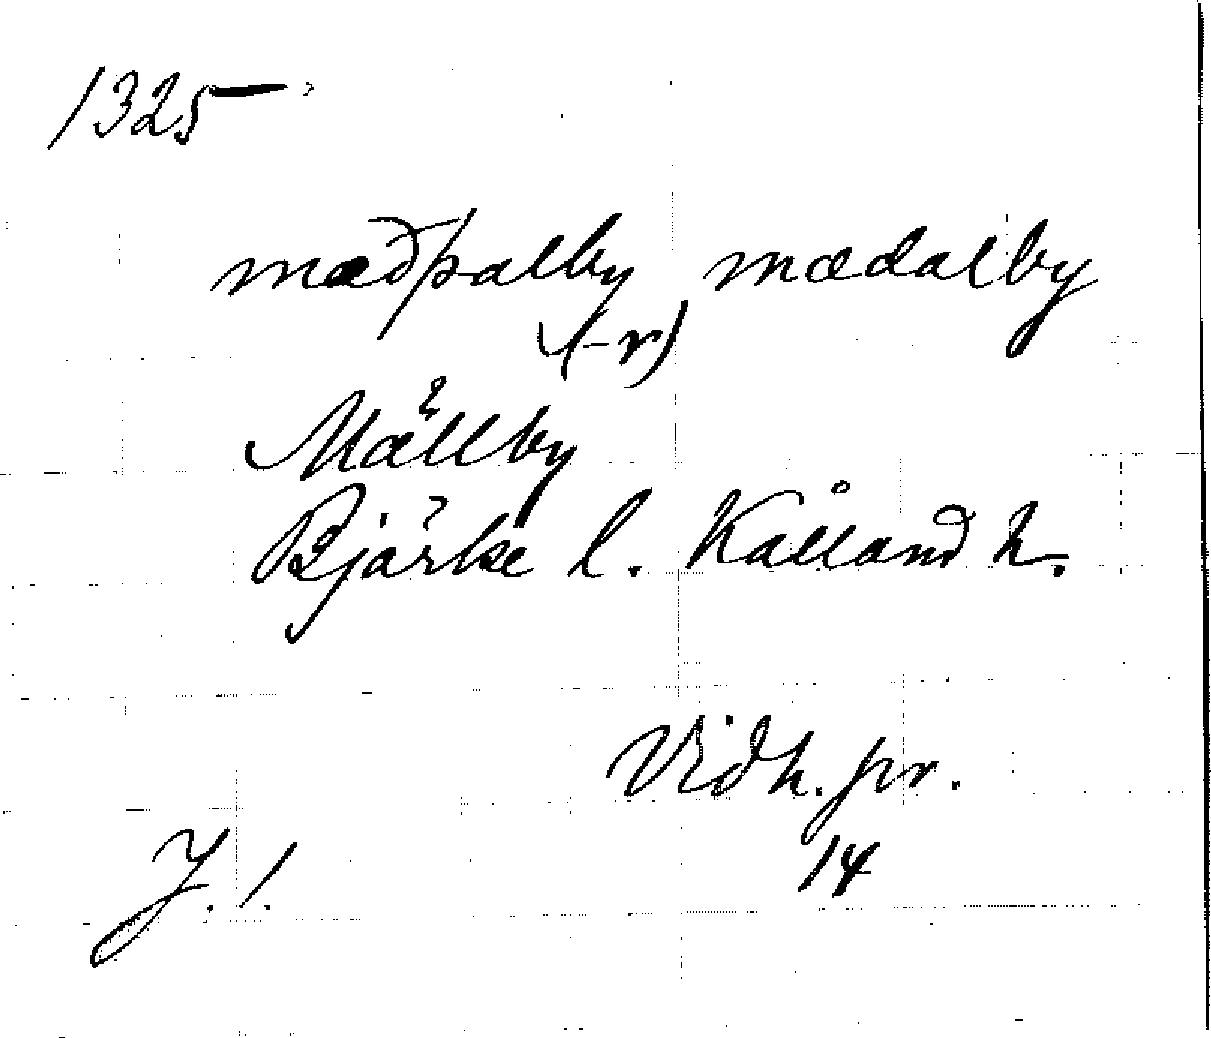 1325
mæðþalby mædalby
(-r)
Mällby
Bjärke l. Kålland h.
Vidh. pr.
14
J. 1.